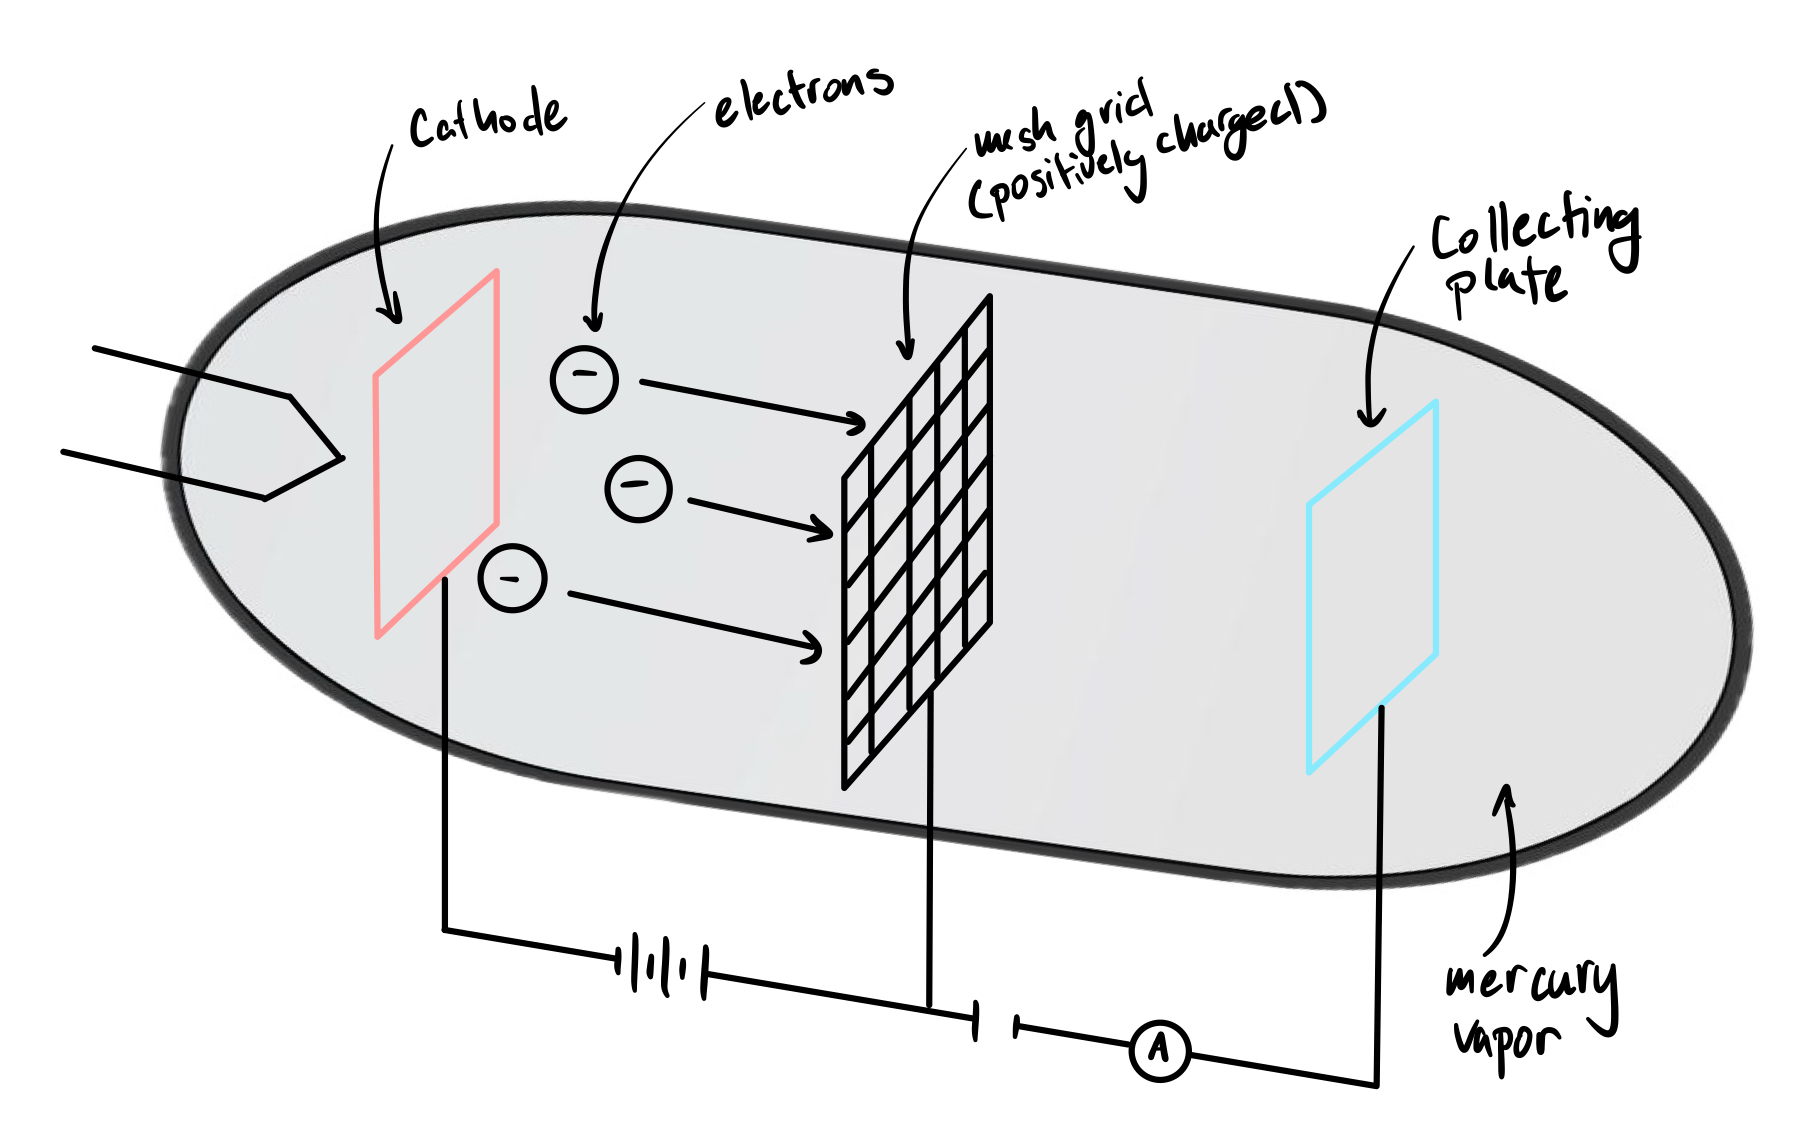 Cathode
electrons
mesh grid
(positively charged)
Collecting
plate
-
-
-
A
mercury
vapor